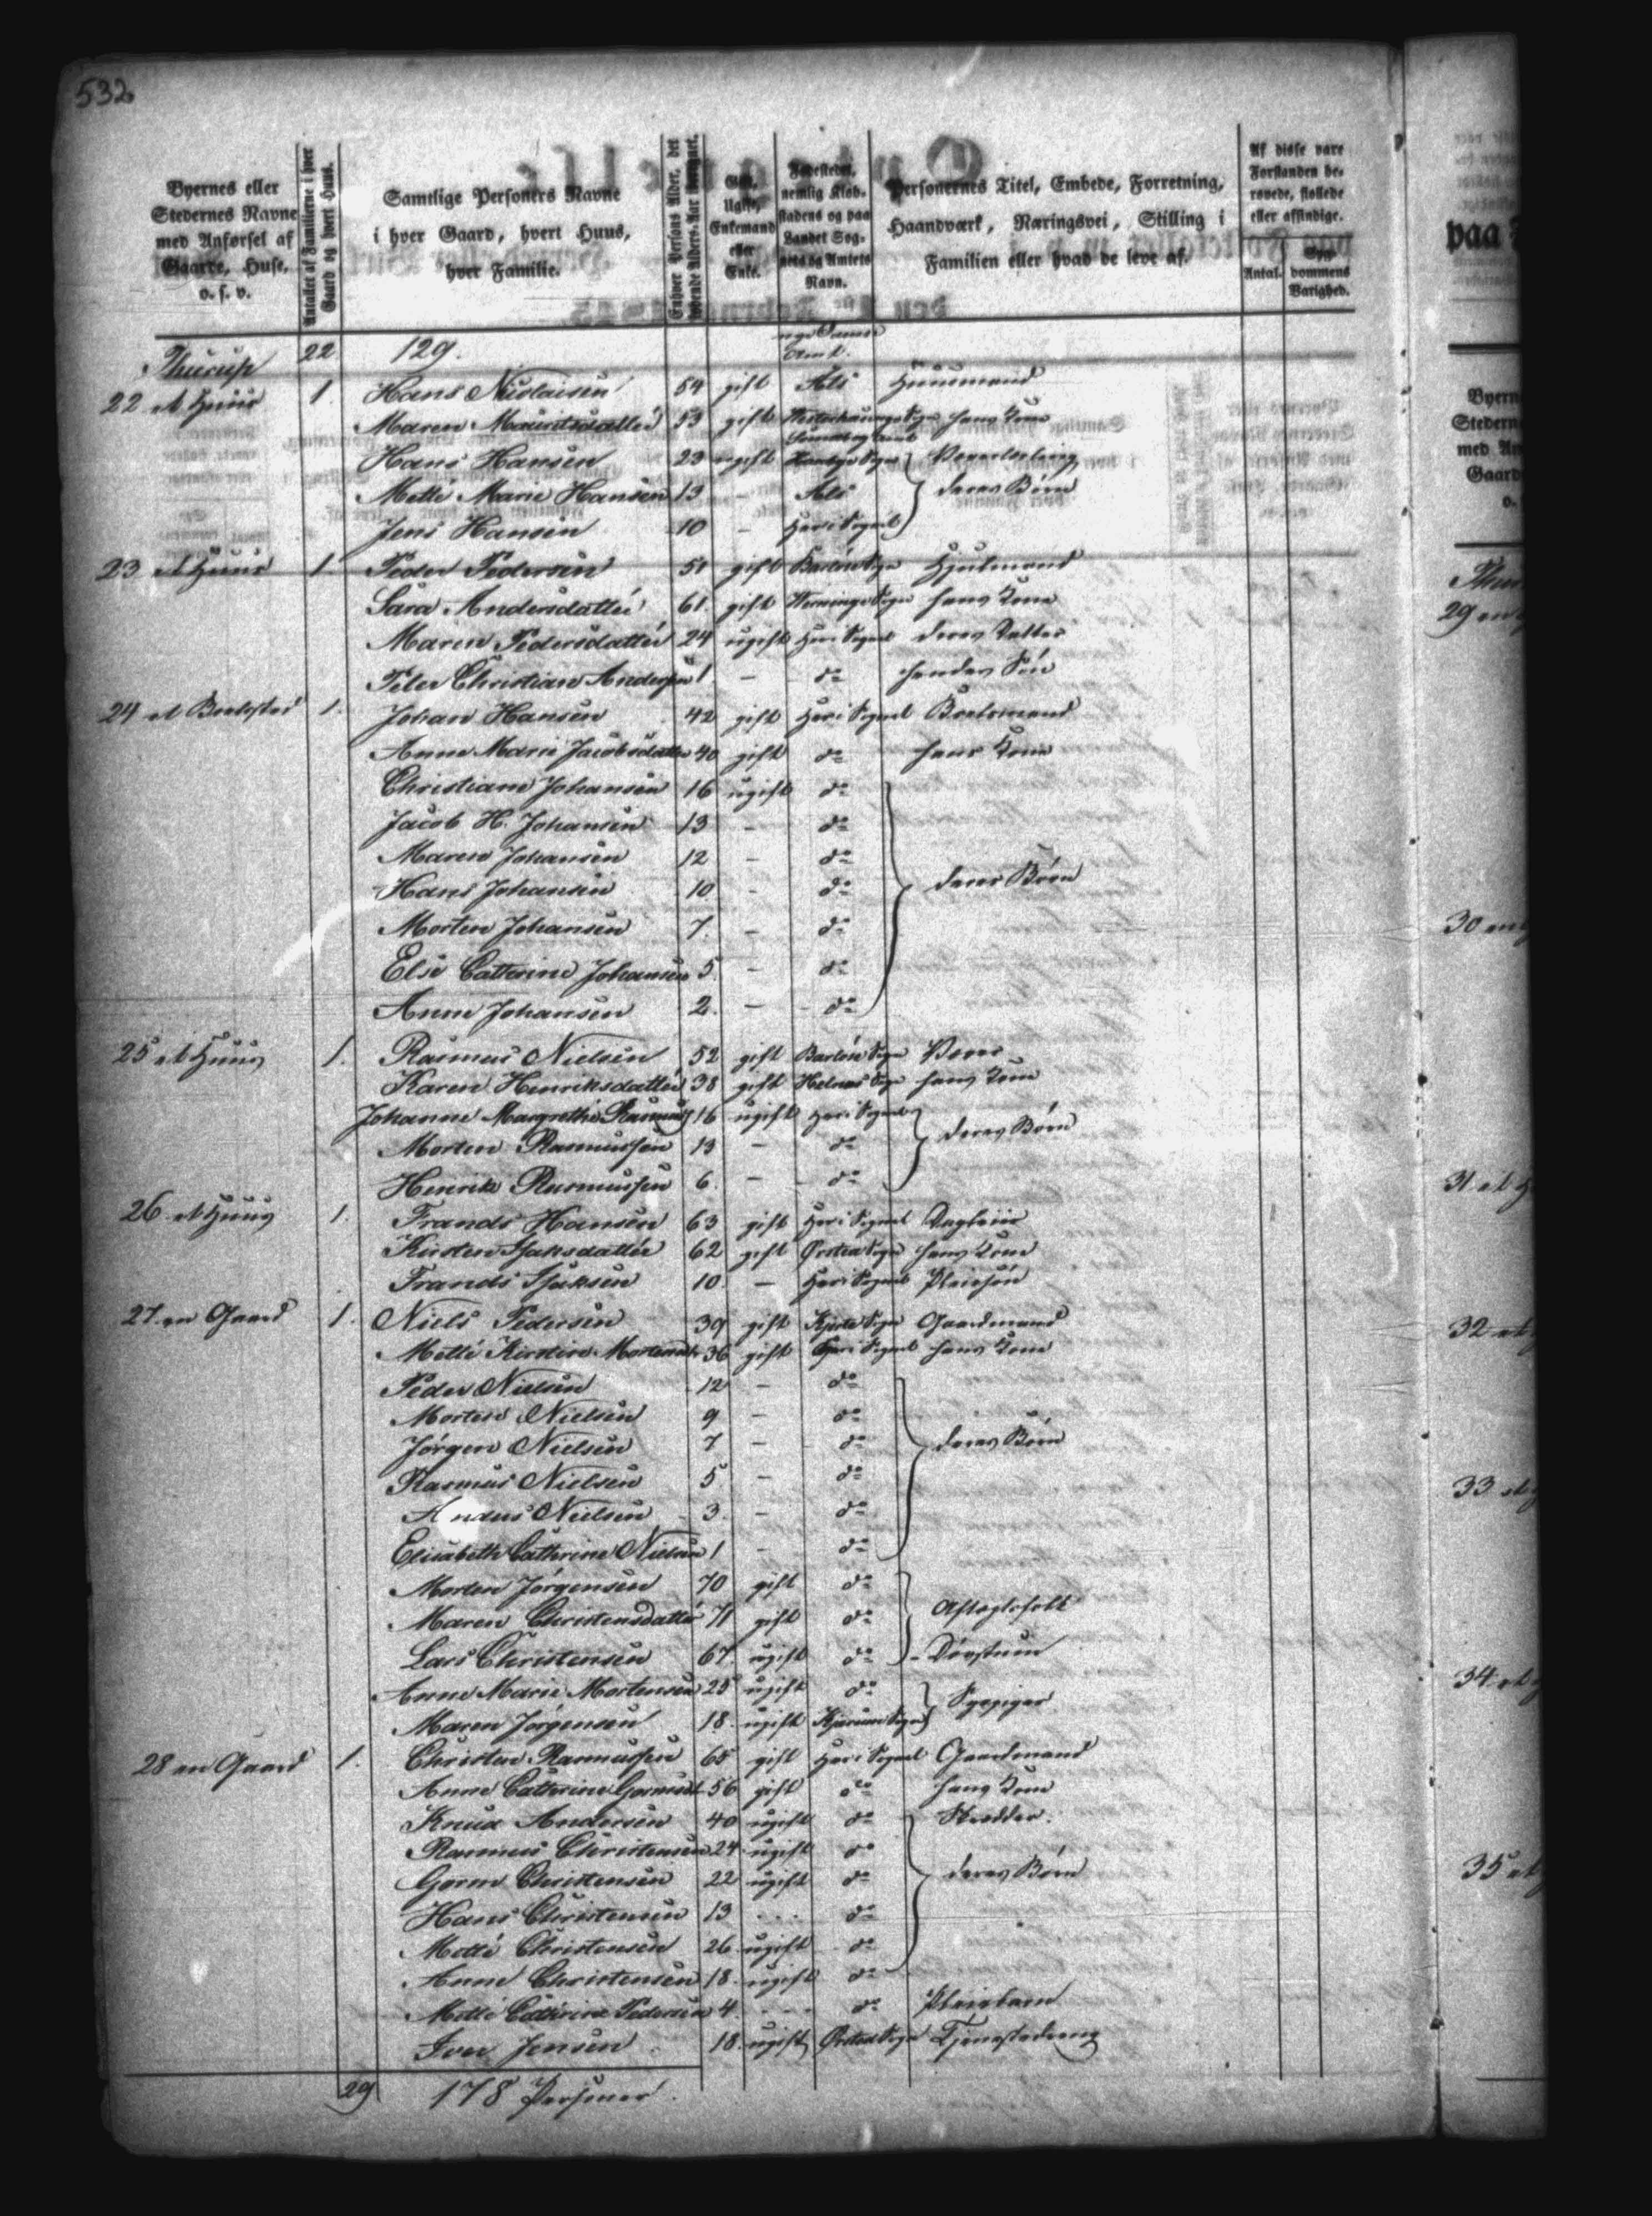 532
Byernes eller Stedernes Navne med Anførsel af Gaarde, Huse, o. s. v.
Antallet af Familierne i hver Gaard og hvert Huus.
Samtlige Personers Navne i hver Gaard, hvert Huus, hver Familie.
Enhver Persons Alder, det løbende Alders-Aar iberegnet.
Gift, Ugift, Enkemand eller Enke.
Fødestedet, nemlig Kiøbstadens og paa Landet Sognets og Amtets Navn.
Personernes Titel, Embede, Forretning, Haandværk, Næringsvei, Stilling i Familien eller hvad de leve af.
Af disse vare Forstanden berøvede, stollede eller afsindige.
Antal.
Sygdommens Varighed.
Thurup 22. 129.
22 et Huus 1. Hans Nicolaisen 54 gift Als Huusmand
Maren Mauritsdatter 53 gift hans Kone
Hans Hansen 23 ugift
Mette Marie Hansen 13 - Als deres Børn
Jens Hansen 10 - Her i Sognet
23 et Huus 1. Peder Pedersen 51 gift Barløse Sogn Hjulmand
Sara Andersdatter 61. gift Sogn hans Kone
Maren Pedersdatter 24 ugift Her i Sognet deres Datter
Peter Christian Andersen 1 - do hendes Søn
24 et Boelssted 1. Johan Hansen 42 gift Her i Sognet Boelsmand
Anne Marie Jacobsdatter 40 gift do hans Kone
Christiane Johansen 16 ugift do
Jacob H. Johansen 13 - do
Maren Johansen 12 - do
Hans Johansen 10 - do deres Børn
Morten Johansen 7. - do
Else Cathrine Johansen 5 - do
Anne Johansen 2. - do
25 et Huus 1. Rasmus Nielsen 52 gift Barløse Sogn Væver
Karen Henriksdatter 38 gift Helnæs Sogn hans Kone
Johanne Margrethe Rasmus 16 ugift Her i Sognet
Morten Rasmussen 13 - do deres Børn
Henrik Rasmussen 6. - do
26 et Huus 1. Frands Hansen 63 gift Her i Sognet Dagleier
Kirsten Isaksdatter 62 gift Ørsted Sogn hans Kone
Frands Isaksen 10. - Her i Sognet Pleiesøn
27 en Gaard 1. Niels Pedersen 39 gift Kjerte Sogn Gaardmand
Mette Kirstine Mortensdr 36 gift Her i Sognet hans Kone
Peder Nielsen 12 - do
Morten Nielsen 9 - do
Jørgen Nielsen 7 - do deres Børn
Rasmus Nielsen 5 - do
Anders Nielsen 3. - do
Elisabeth Cathrine Nielsen 1 - do
Morten Jørgensen 70 gift do
Maren Christensdatter 71 gift do Aftægtsfolk
Lars Christensen 67. ugift do
Anne Marie Mortensen 25 ugift do
Maren Jørgensen 18. ugift Kjærum Sogn Sypiger
28 en Gaard 1. Christen Rasmussen 65 gift Her i Sognet Gaardmand
Anne Cathrine Gormsdr 56 gift do hans Kone
Knud Andersen 40 ugift do Skrædder.
Rasmus Christensen 24 ugift do
Gorm Christensen 22 ugift do deres Børn
Hans Christensen 13 ... do
Mette Christensen 26 ugift do
Anne Christensen 18. ugift do
Mette Cathrine Pedersen 4 ... do Pleiebarn
Iver Jensen 18. ugift Ørsted Sogn Tjenestedreng
29 178 Personer.
paa
29 en
30 en
31 et H
32 et
33 et
34 et
35 et